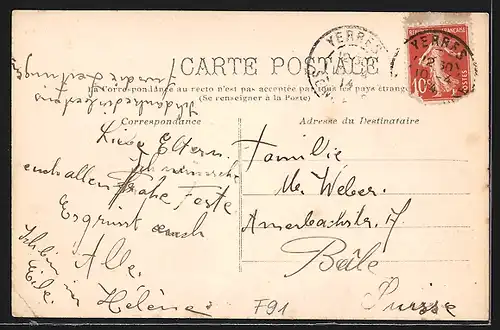 YERRES
YERRES
10-4
14
RÉPUBLIQUE FRANÇAISE
10c
POSTES
CARTE POSTALE
La Correspondance au recto n'est pas acceptée par tous les pays étrangers
(Se renseigner à la Poste)
Correspondance
Adresse du Destinataire
Liebe Eltern.
Ich wünsche
euch allen Frohe Feste
Es grüsst euch
Alle.
Hélène
Ich bin in
Eile.
Familie
Me. Weber.
Amerbachstr. 7
Bâle
Suisse
F91